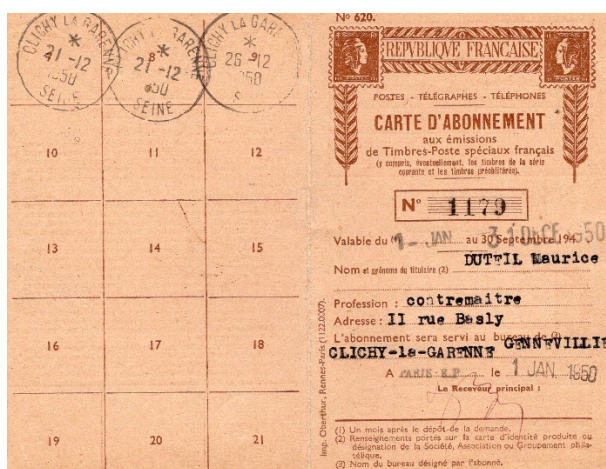 CLICHY LA GARENNE
21-12
1950
SEINE
CLICHY LA GARENNE
8
21-12
50
SEINE
CLICHY LA GARE
9
26-12
50
S
10 11 12
13 14 15
16 17 18
19 20 21
Nº 620.
REPVBLIQVE FRANÇAISE
POSTES - TÉLÉGRAPHES - TÉLÉPHONES
CARTE D'ABONNEMENT
aux émissions
de Timbres-Poste spéciaux français
(y compris, éventuellement, les timbres de la série
courante et les timbres préoblitérés).
N° 1179
Valable du (1) 1- JAN au 30 Septembre 194 31 DECE 1950
DUTEIL Maurice
Nom et prénoms du titulaire (2)
Profession : contremaitre
Adresse : II rue Basly
L'abonnement sera servi au bureau de (3) GENNEVILLIE
CLICHY-la-GARENNE
A PARIS R.P. le 1 JAN. 1950
Le Receveur principal :
(1) Un mois après le dépôt de la demande.
(2) Renseignements portés sur la carte d'identité produite ou
désignation de la Société, Association ou Groupement phila-
télique.
(3) Nom du bureau désigné par l'abonné.
Imp. Oberthur, Rennes-Paris (1122.0007).